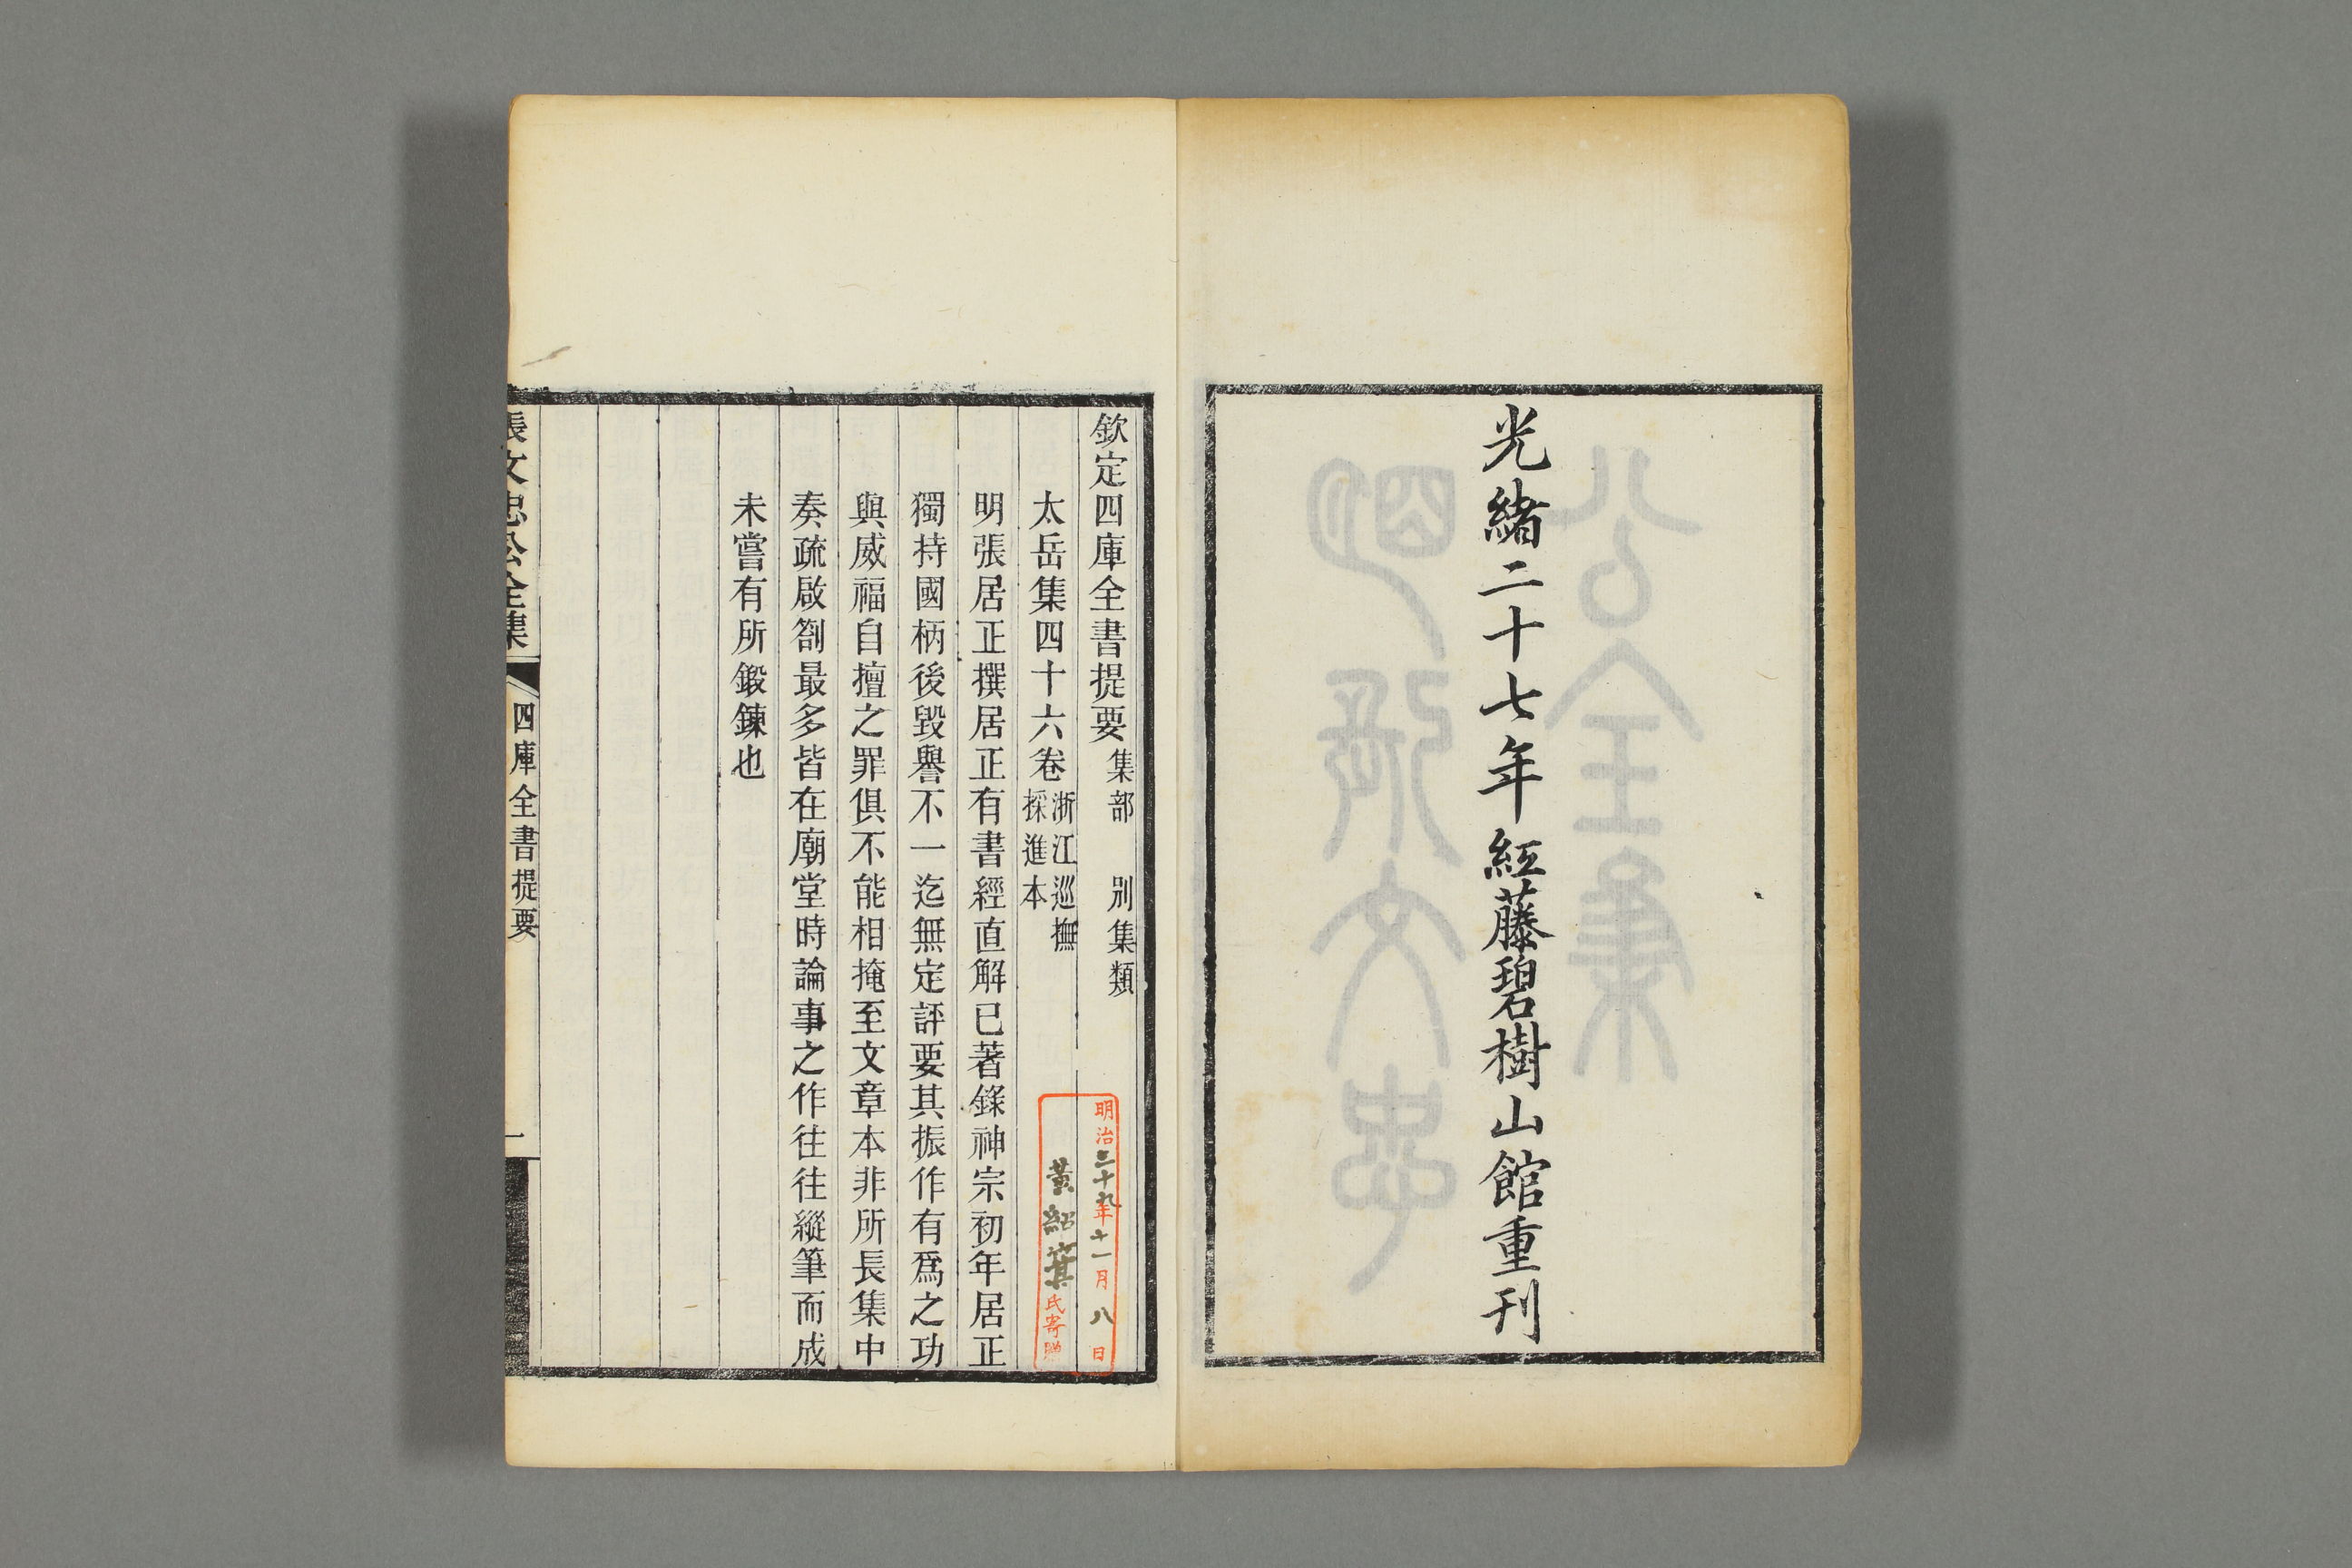 光緒二十七年紅藤碧樹山館重刊
欽定四庫全書提要 集部 別集類
太岳集四十六卷 浙江巡撫
採進本
明張居正撰居正有書經直解已著錄神宗初年居正
獨持國柄後毀譽不一迄無定評要其振作有爲之功
與威福自擅之罪俱不能相掩至文章本非所長集中
奏疏啟劄最多皆在廟堂時論事之作往往縱筆而成
未嘗有所鍛鍊也
張文忠公全集 四庫全書提要 一
明治三十九年十一月八日
黃紹箕氏寄贈